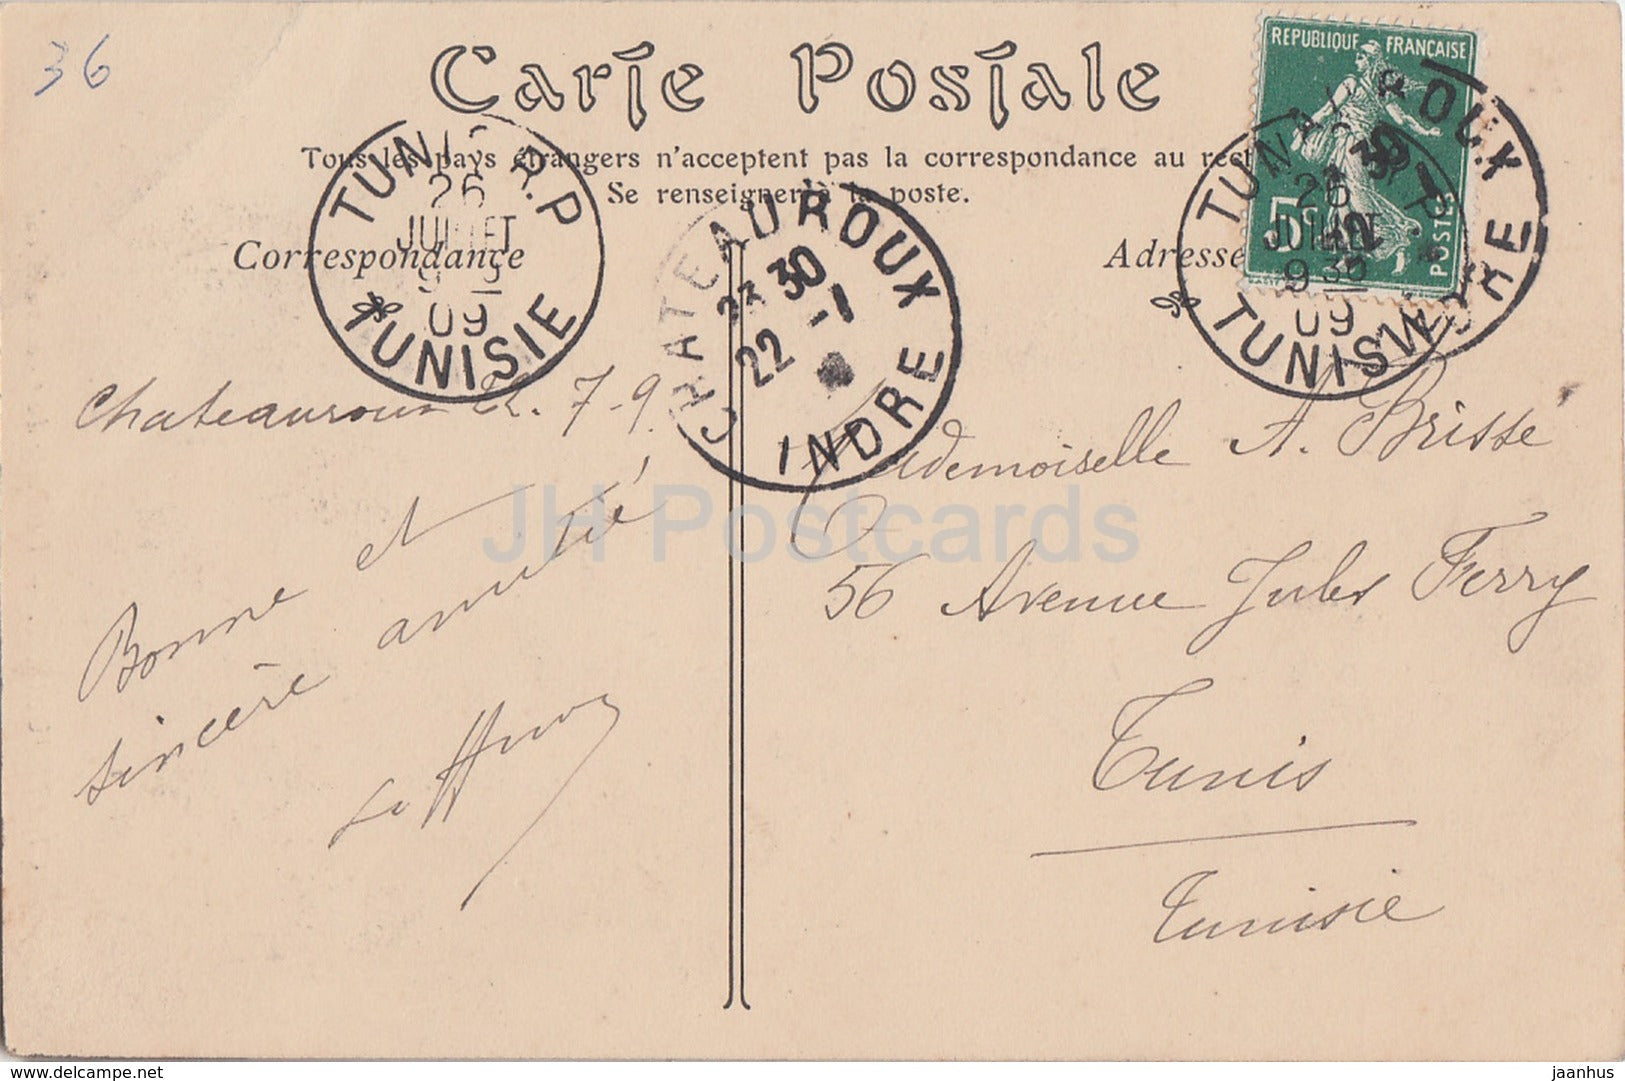 36
Carte Postale
RÉPUBLIQUE FRANÇAISE
5c
POSTES
Tous les pays étrangers n'acceptent pas la correspondance au rect
Se renseigner à la poste.
Correspondance
Adresse
TUNIS R.P
26
JUILLET
09
TUNISIE
CHATEAUROUX
23 30
22 -7
INDRE
TUNIS R.P
26
JUILLET
9 30
09
TUNISIE
ROUX
INDRE
Chateauroux 22. 7- 9.
Bonne et
sincère amitié
Mademoiselle A. Brisse
56 Avenue Jules Ferry
Tunis
Tunisie
JH Postcards
delcampe.net
jaanhus